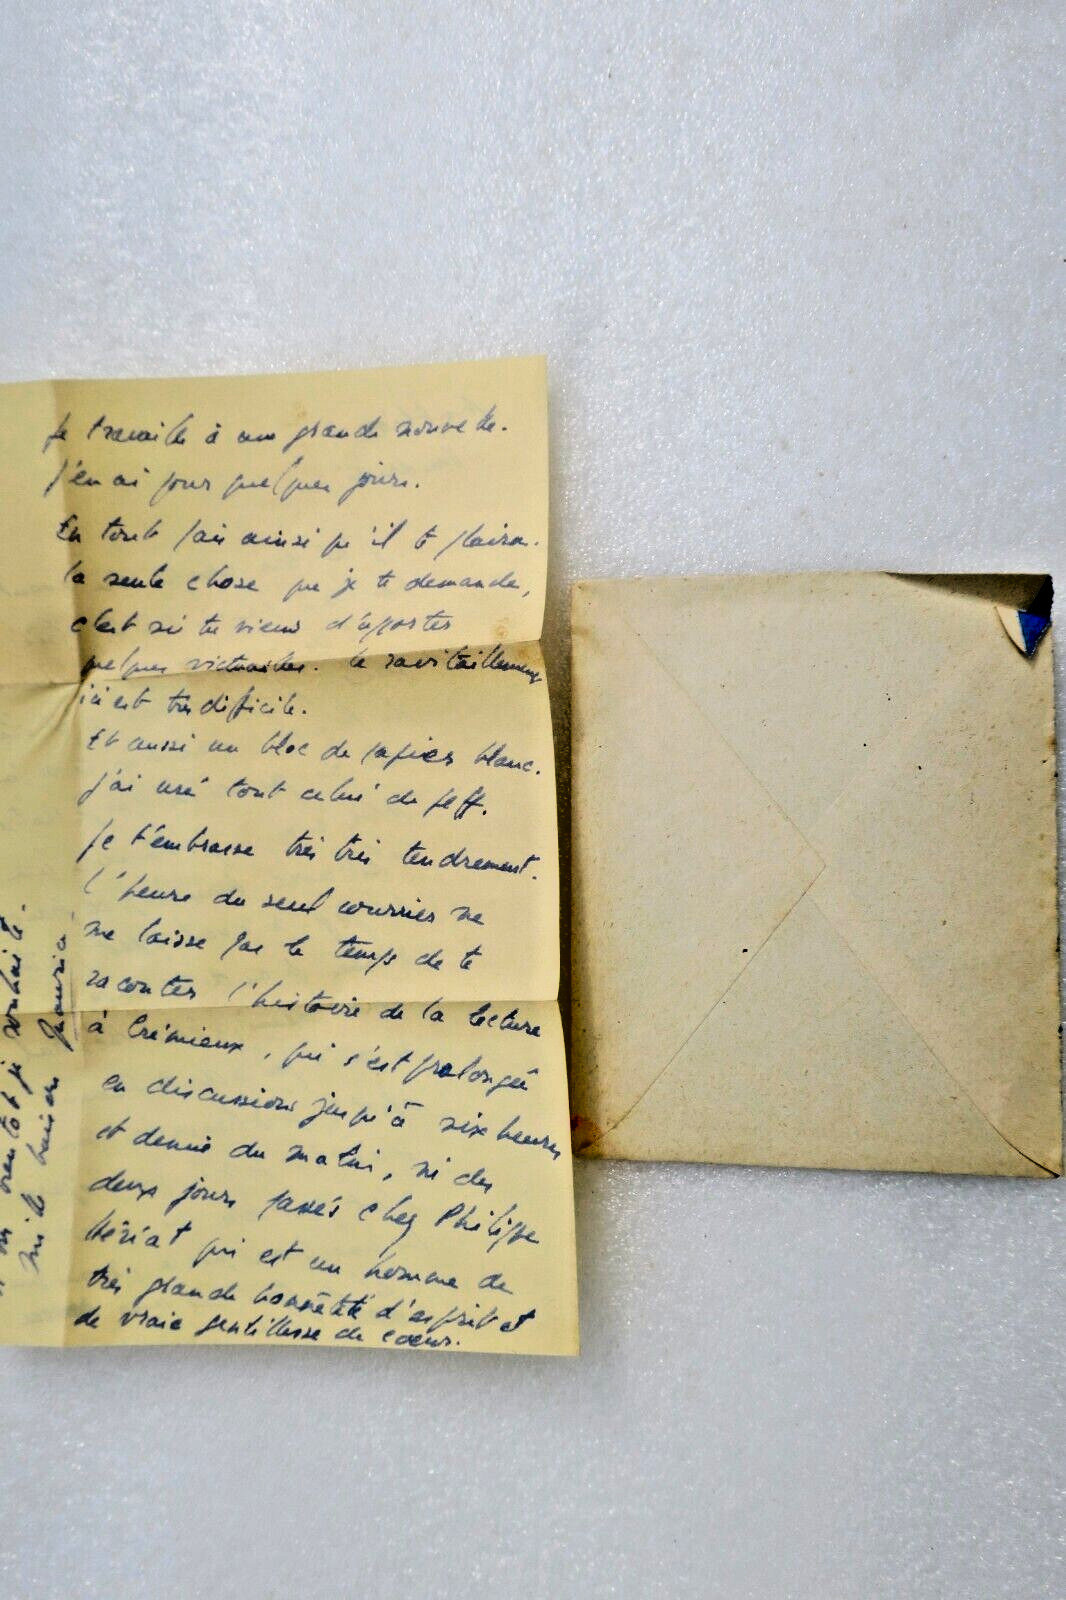 Je travaille à une grande nouvelle.
J'en ai pour quelques jours.
En tout fais ainsi qu'il te plaira.
La seule chose que je te demande,
c'est si tu viens d'apporter
quelques victuailles. Le ravitaillement
ici est très difficile.
Et aussi un bloc de papier blanc.
J'ai usé tout celui de Jeff.
Je t'embrasse très très tendrement.
L'heure du seul courrier ne
me laisse pas le temps de te
raconter l'histoire de la lecture
à Crémieux, qui s'est prolongée
en discussions jusqu'à six heures
et demie du matin, ni des
deux jours passés chez Philippe
Hériat qui est un homme de
très grande honnêteté d'esprit et
de vraie gentillesse de coeur.
bientôt je souhaite.
mille baisers Maurice